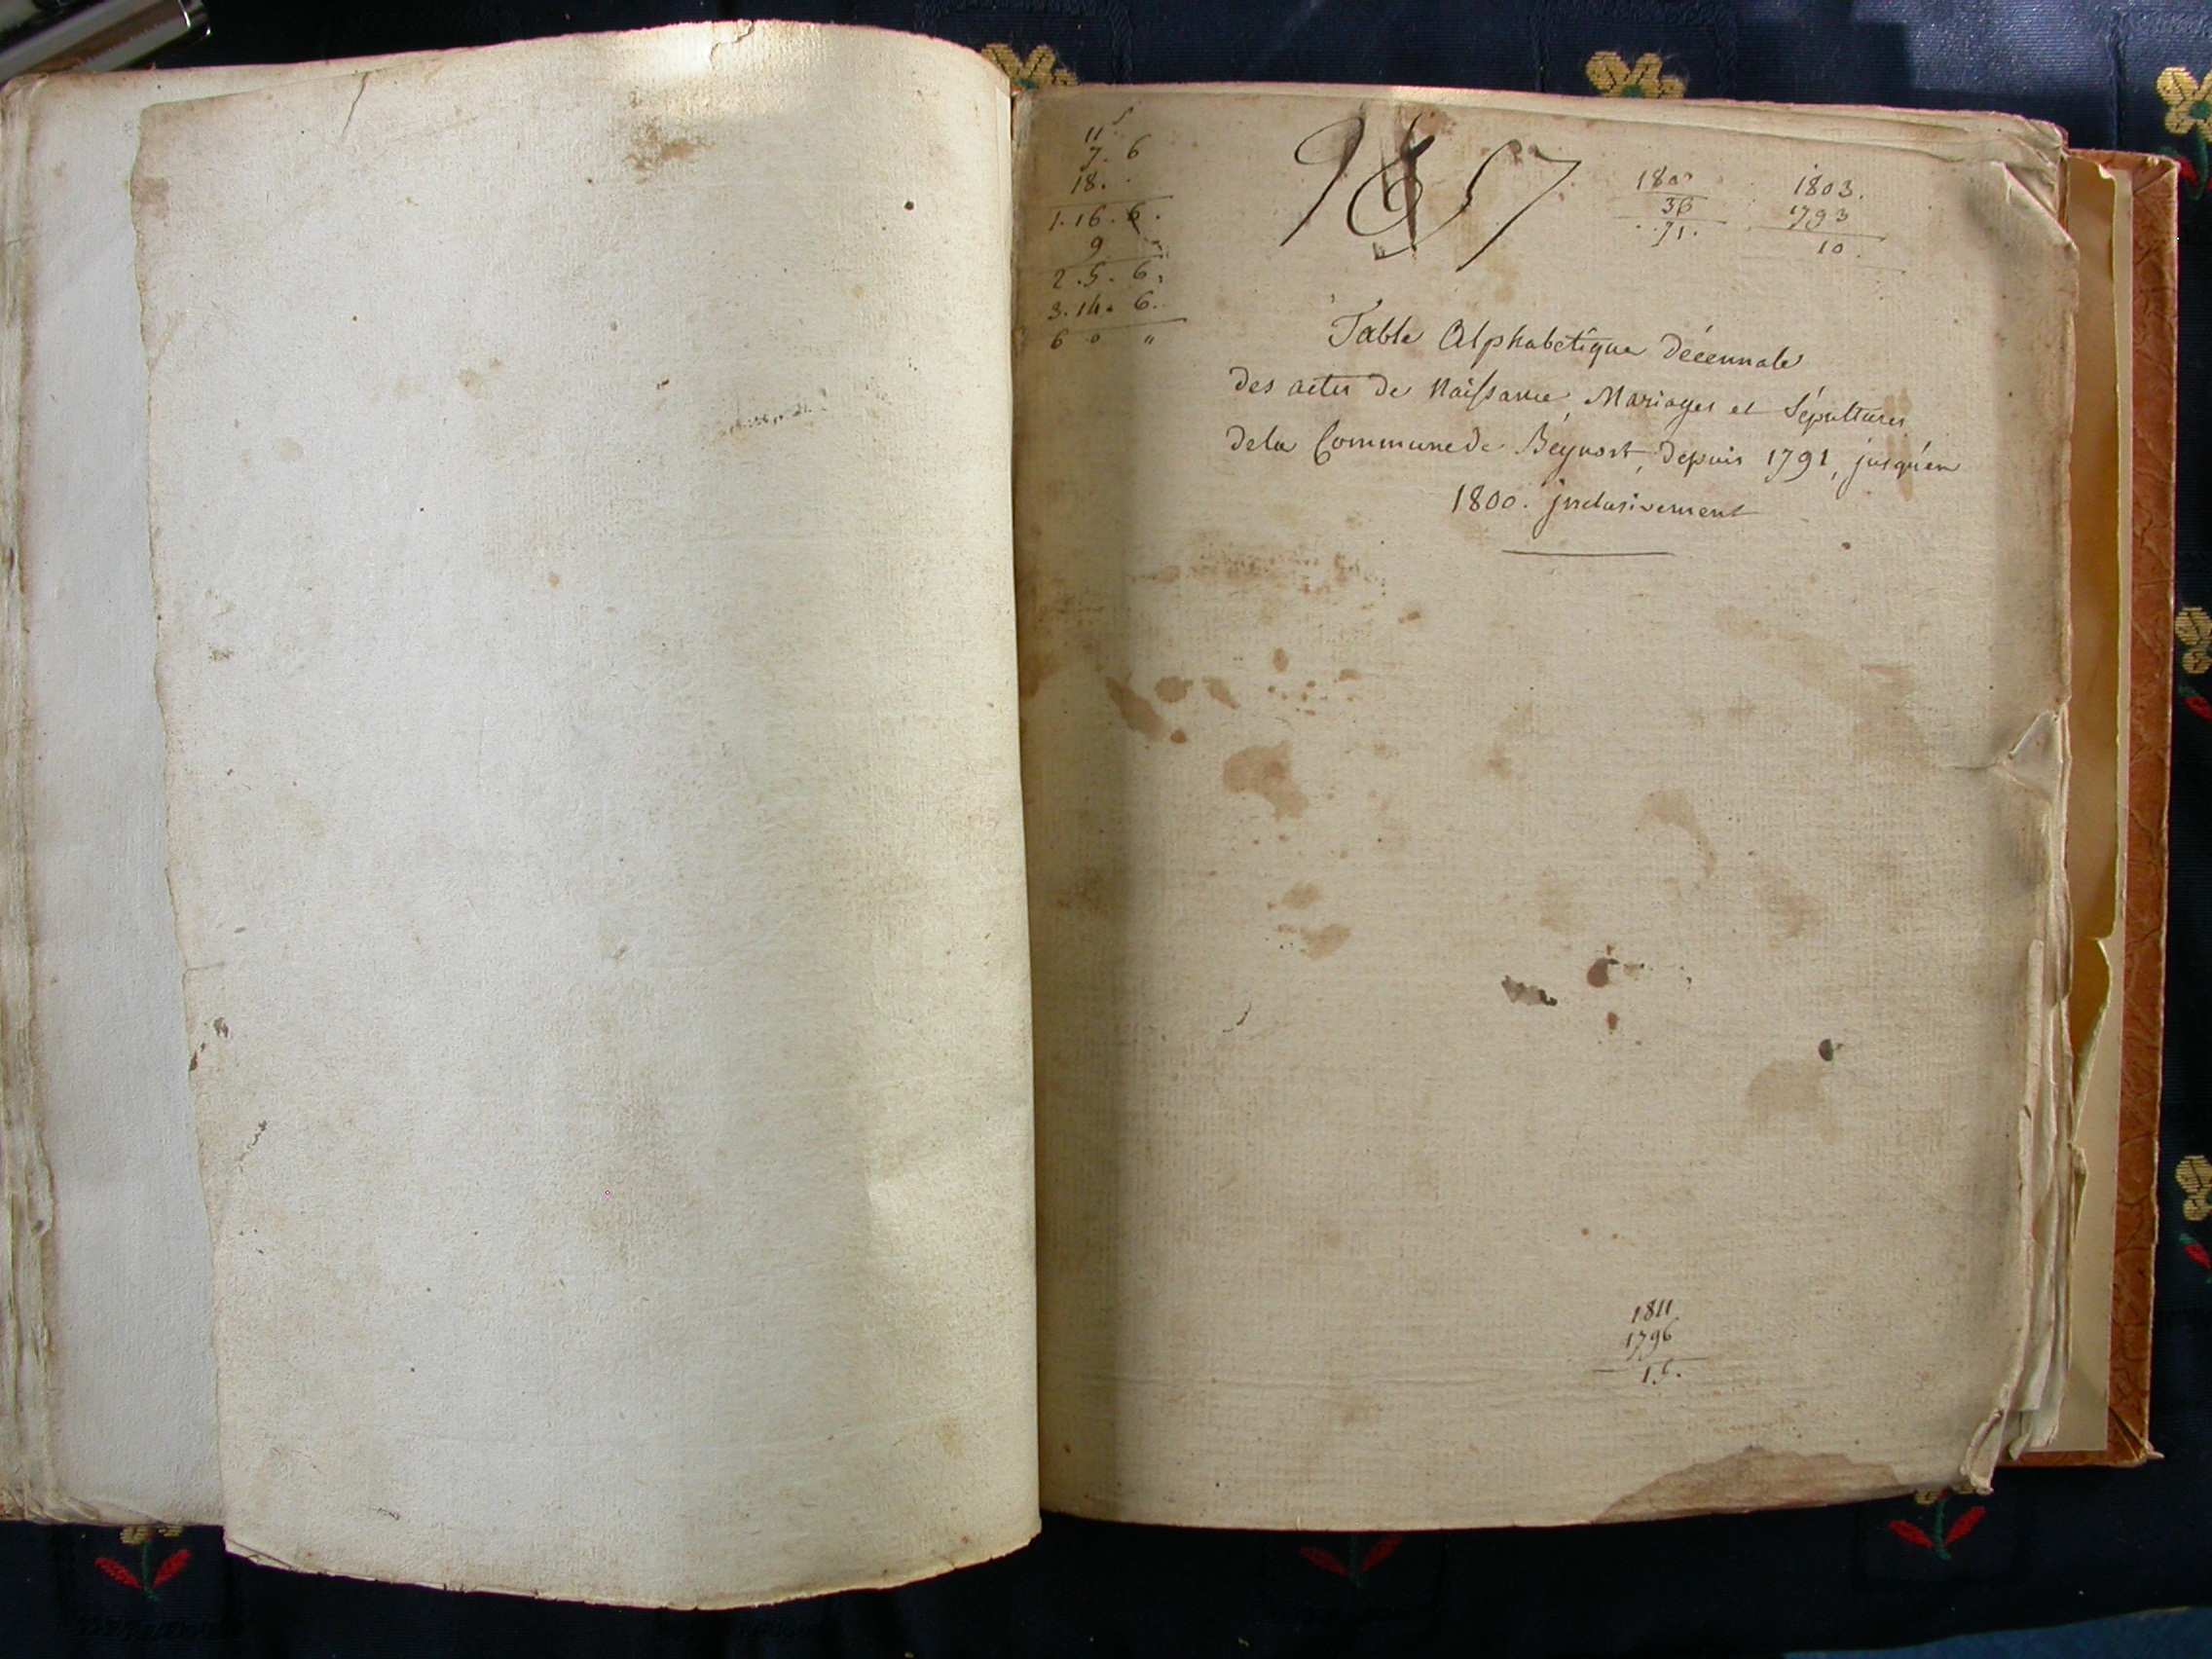 11 s
7. 6
18. .
1. 16. 6.
9
2. 5. 6.
3. 14. 6.
6 0 "
1803.
1793
10.
Table Alphabétique décennale
des actes de Naissance, Mariages et Sépultures
de la Commune de Beynost, depuis 1791, jusqu'en
1800. jnclusivement
1811
1796